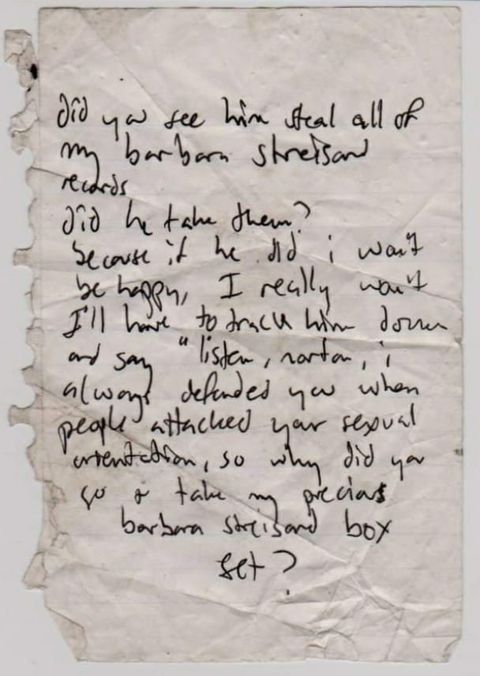 did you see him steal all of
my barbara streisand
records
did he take them?
because if he did i won't
be happy, I really won't
I'll have to track him down
and say "listen, norton, i
always defended you when
people attacked your sexual
orientation, so why did you
go & take my precious
barbara streisand box
set?